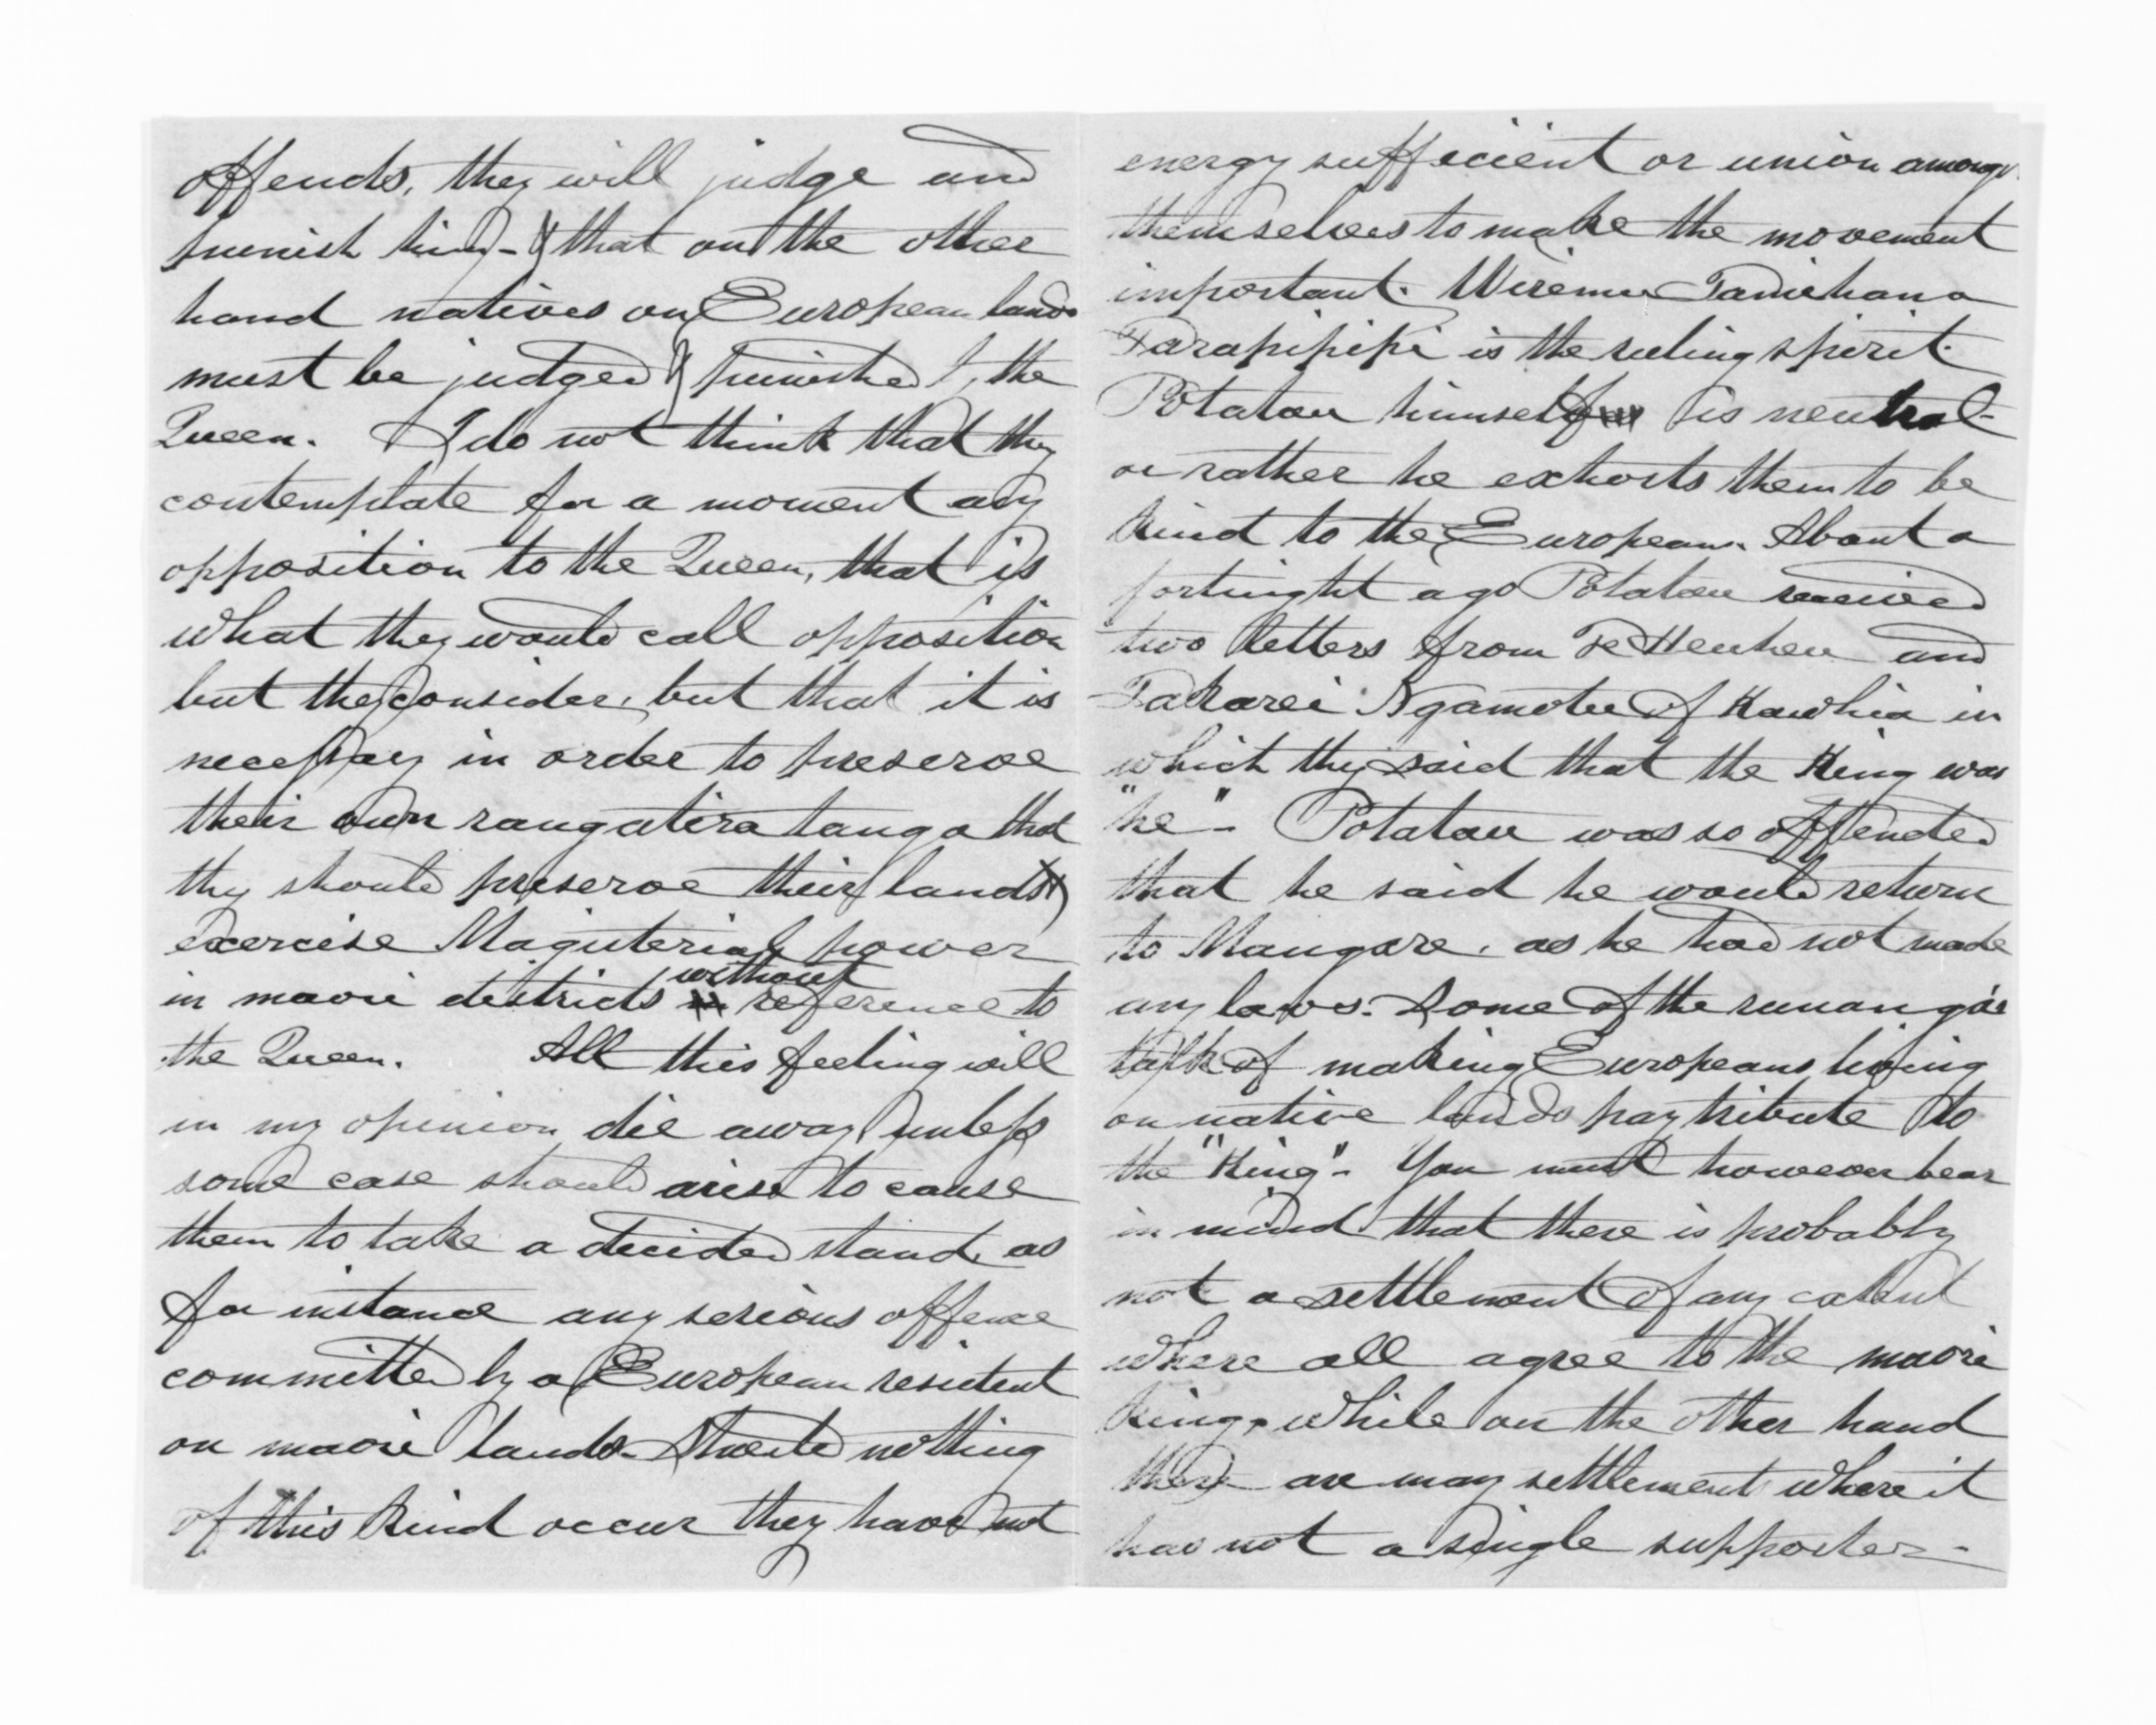 offends, they will judge and
punish him - & that on the other
hand natives on European lands
must be judged & punished by the
Queen. I do not think that they
contemplate for a moment any
opposition to the Queen, that is
what they would call opposition
but they consider, but that it is
necessary in order to preserve
their own rangatiratanga that
they should preserve their lands &
exercise Magisterial power
in maori districts without reference to
the Queen. All this feeling will
in my opinion die away unless
some case should arise to cause
them to take a decided stand as
for instance any serious offence
committed by a European resident
on maori lands. Should nothing
of this kind occur they have not
energy sufficient or union amongst
themselves to make the movement
important. Wiremu Tamehana
Tarapipipi is the ruling spirit.
Potatau himself is neutral -
or rather he exhorts them to be
kind to the European. About a
fortnight ago Potatau received
two letters from Te Heuheu and
Takarei Ngamotu of Kawhia in
which they said that the King was
"he" - Potatau was so offended
that he said he would return
to Mangere, as he had not made
any laws. Some of the runangas
talk of making Europeans living
on native lands pay tribute to
the "King" - You must however bear
in mind that there is probably
not a settlement of any extent
where all agree to the maori
king, while on the other hand
there are many settlements where it
has not a single supporter -